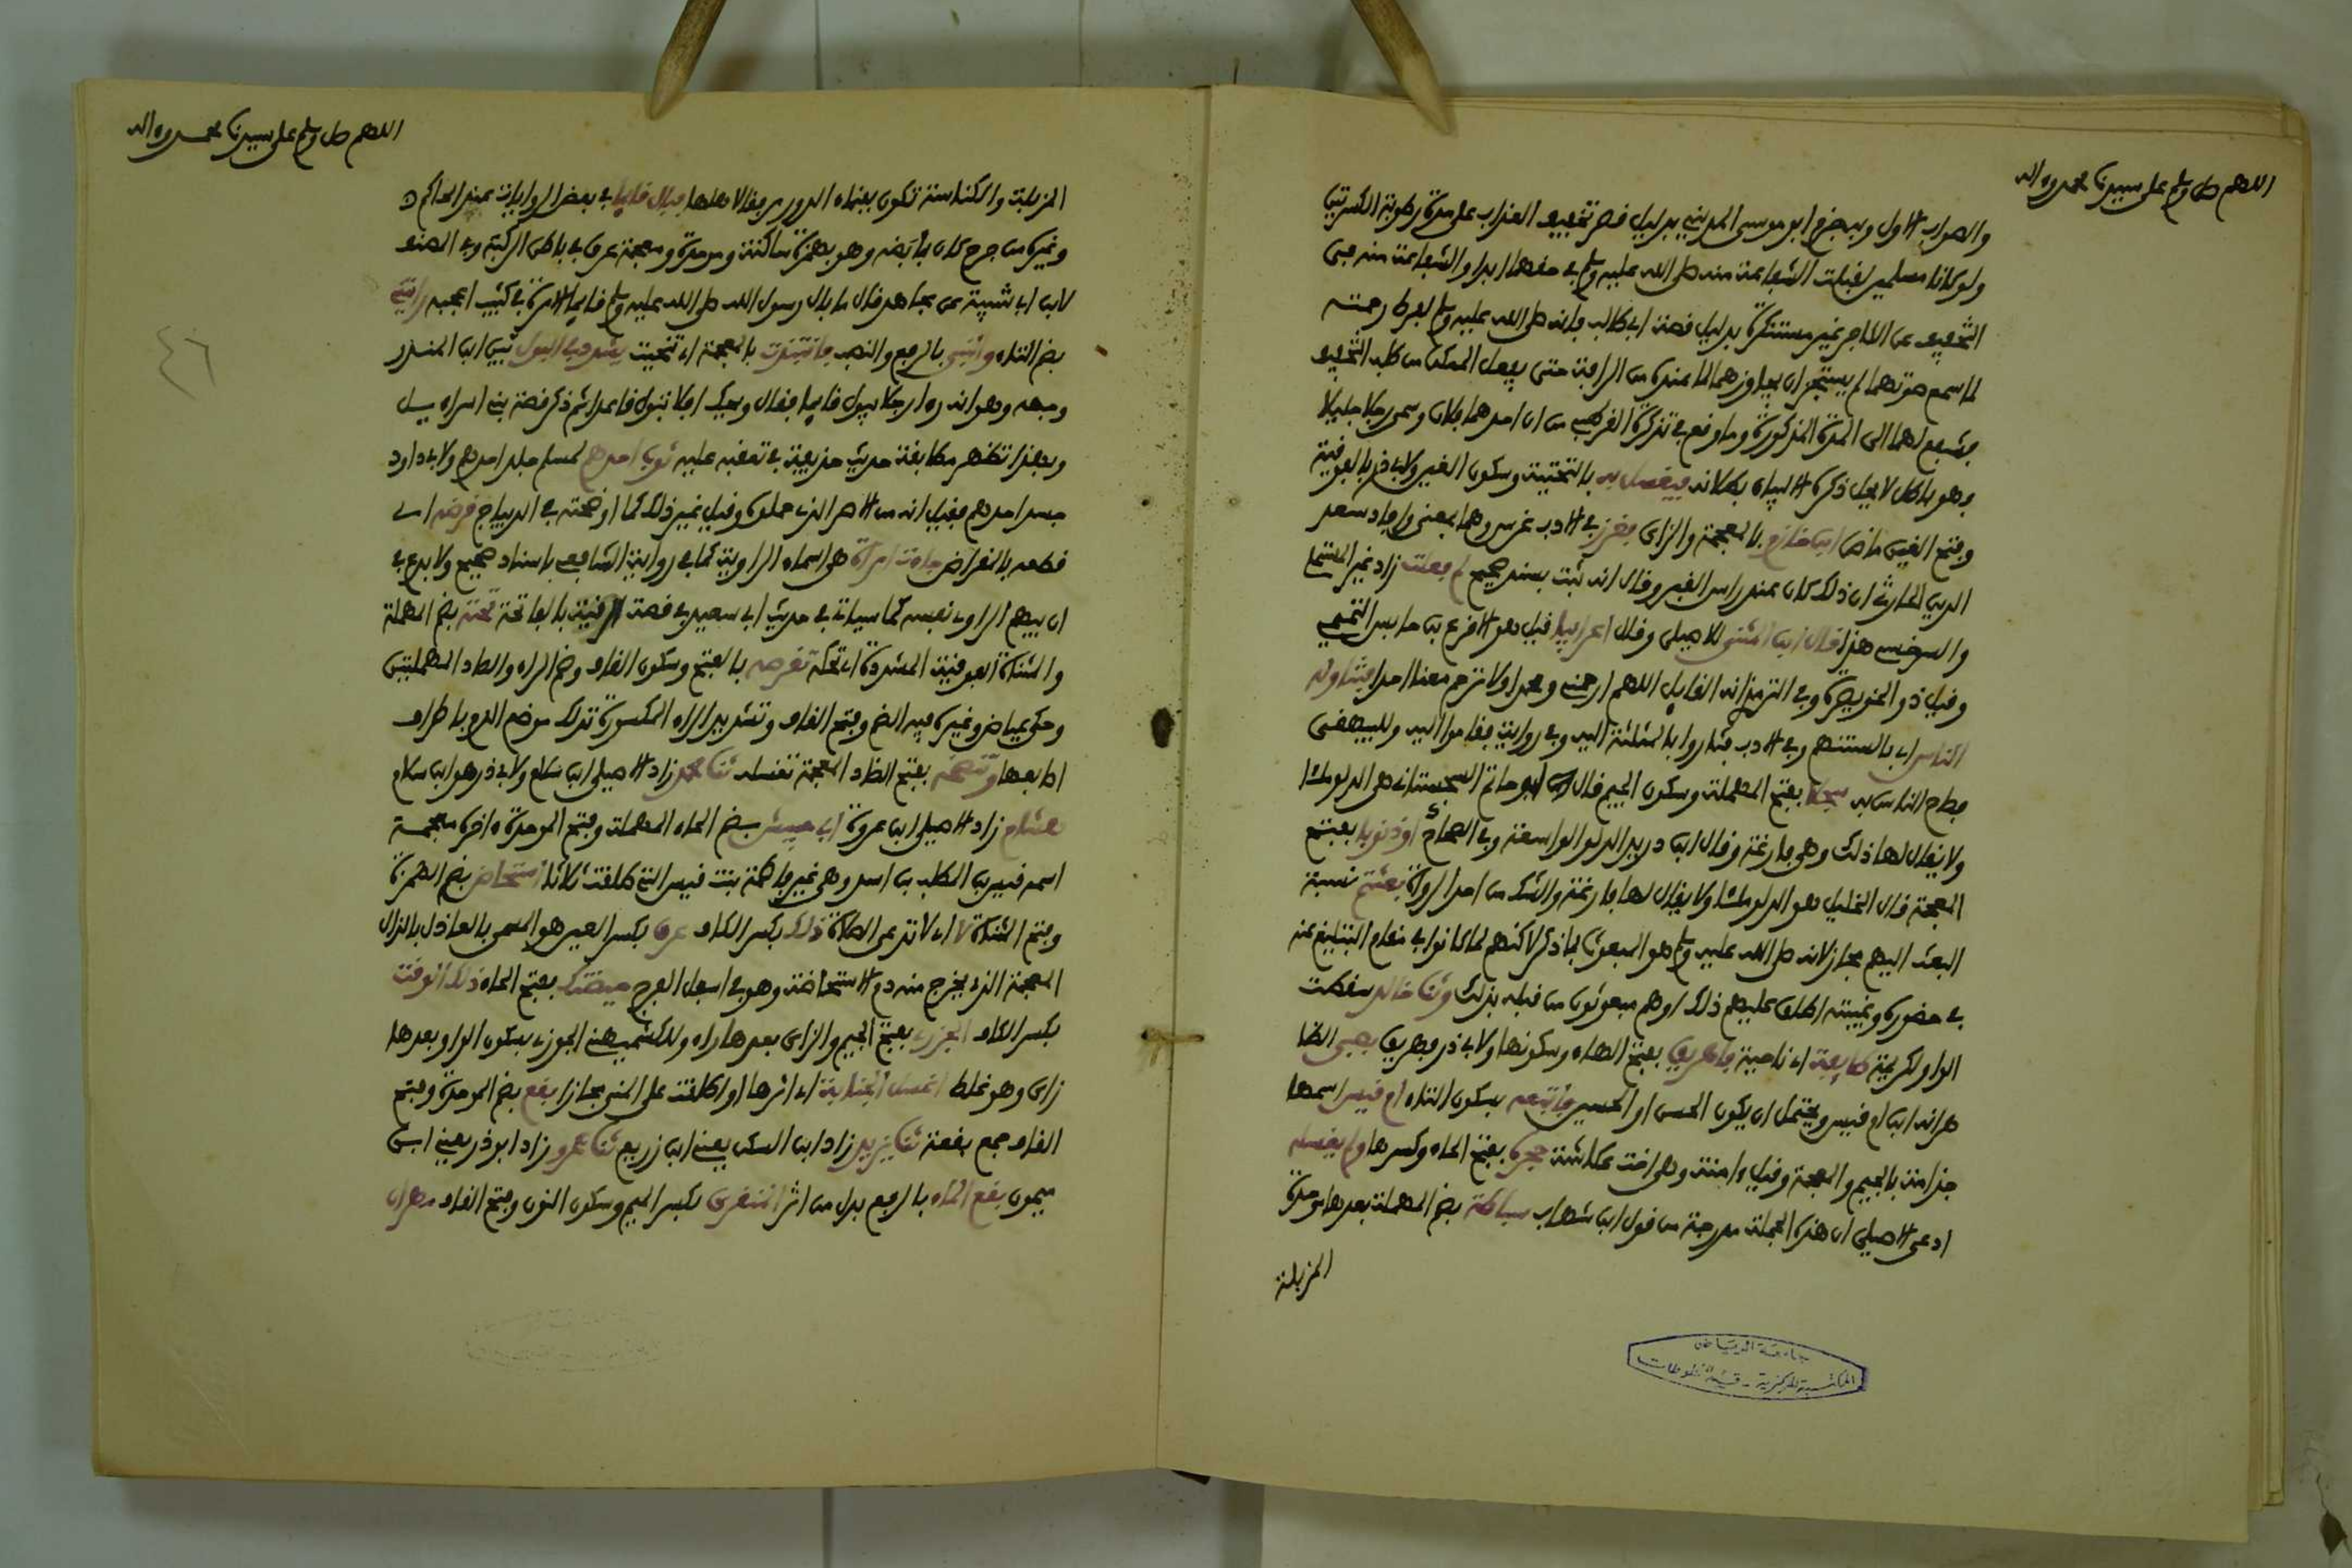 اللهم صل وسلم على سيدنا محمد وءاله
والصواب الاول وبه جزم ابو موسى المديني بدليل قصر تخفيف العذاب على مدة رطوبة الكسرتين
ولو كانا مسلمين لقبلت الشفاعة منه صلى الله عليه وسلم في حقهما ابدا والشفاعة منه في
التخفيف عن الكافر غير مستنكرة بدليل قصة ابي طالب فانه صلى الله عليه وسلم لفرط رحمته
لما سمع صوتهما لم يستجز ان يجاوزهما لما عنده من الرافة حتى يفعل الممكن من طلب التخفيف
فشفع لهما الى المدة المذكورة وما وقع في تذكرة القرطبي من ان احدهما فلان وسمى رجلا جليلا
فهو باطل لا يحل ذكره الا لبيان بطلانه فيغسل به بالتحتية وسكون الغين ولابي ذر بالفوقية
وفتح الغين ماض ابن خازم بالمعجمة والزاى فغرز في الادب غرس وهما بمعنى وافاد سعد
الدين الحارثي ان ذلك كان عند راس القبر وقال انه ثبت بسند صحيح لم فعلت زاد غير المستملي
والسرخسي هذا قال ابن المثنى للاصيلي وقال اعرابيا قيل هو الاقرع بن حابس التميمي
وقيل ذو الخويصرة وفي الترمذي انه القايل اللهم ارحمني ومحمدا ولا ترحم معنا احدا فتناوله
الناس اي بالسنتهم وفي الادب فثاروا بالمثلثة اليه وفي رواية فقاموا اليه وللبيهقي
فصاح الناس به سجلا بفتح المهملة وسكون الجيم قال ابو حاتم السجستاني هي الدلو ملئا
ولا يقال لها ذلك وهي فارغة وقال ابن دريد الدلو الواسعة وفي الصحاح او ذنوبا بفتح
المعجمة قال الخليل هو الدلو ملئا ولا يقال لها فارغة والشك من احد الرواة بعثتم نسبة
البعث اليهم مجاز لانه صلى الله عليه وسلم هو المبعوث بما ذكر لاكنهم لما كانوا في مقام التبليغ عنه
في حضوره وغيبته اطلق عليهم ذلك او هم مبعوثون من قبله بذلك وثنا خالد سقطت
الواو لكريمة طايفة اي ناحية فاهريق بفتح الهاء وسكونها ولابي ذر فهريق بصبي الظا
هر انه ابن ام قيس ويحتمل ان يكون الحسن او الحسين فاتبعه بسكون التاء ام قيس اسمها
جذامة بالجيم والمعجمة وقيل ءامنة وهي اخت عكاشة حجره بفتح الحاء وكسرها ولم يغسله
ادعى الاصيلي ان هذه الجملة مدرجة من قول ابن شهاب سباطة بضم المهملة بعدها موحدة
المزبلة
جامعة الرياض
المكتبة المركزية - قسم المخطوطات
اللهم صل وسلم على سيدنا محمد وءاله
٤٦
المزبلة والكناسة تكون بفناء الدور مرفقا لاهلها فبال قايما في بعض الروايات عند الحاكم
وغيره من جرح كان بمأبضه وهو بهمزة ساكنة وموحدة ومعجمة عرق في باطن الركبة وفي المصنف
لابن ابي شيبة عن مجاهد قال ما بال رسول الله صلى الله عليه وسلم قايما الا مرة في كثيب اعجبه رايتني
بضم التاء وانتبي بالرفع والنصب فانتبذت بالمعجمة اي تنحيت يشدد في البول بين ابن المنذر
وجهه وهو انه راى رجلا يبول قايما فقال ويحك افلا تبول قاعدا ثم ذكر قصة بني اسراءيل
وبهذا تظهر مطابقة حديث حذيفة في تعقبه عليه ثوب احدهم لمسلم جلد احدهم ولابي داود
جسد احدهم فقيل انه من الاصر الذي حملوه وقيل غير ذلك كما اوضحته في الديباج قرضه اي
قطعه بالمقراض جاءت امراة هي اسماء الراوية كما في رواية الشافعي باسناد صحيح ولا بدع في
ان يبهم الراوي نفسه كما سياتي في حديث ابي سعيد في قصة الرقية بالفاتحة تحته بضم المهملة
والمثناة الفوقية المشددة اي تحكه تقرصه بالفتح وسكون القاف وضم الراء والصاد المهملتين
وحكى عياض وغيره فيه الضم وفتح القاف وتشديد الراء المكسورة تدلك موضع الدم باطراف
اصابعها وتنضحه بفتح الضاد المعجمة تغسله ثنا محمد زاد الاصيلي ابن سلام ولابي ذر هو ابن سلام
هشام زاد الاصيلي ابن عروة ابي حبيش بضم الحاء المهملة وفتح الموحدة ءاخره معجمة
اسمه قيس بن المطلب بن اسد وهي غير فاطمة بنت قيس التي طلقت ثلاثا استحاض بضم الهمزة
وفتح المثناة لا اي لا تدعي الصلاة ذلك بكسر الكاف عرق بكسر العين هو المسمى بالعاذل بالذال
المعجمة الذي يخرج منه دم الاستحاضة وهو في اسفل الفرج حيضتك بفتح الحاء ذلك الوقت
بكسر الكاف الجزري بفتح الجيم والزاى بعدها راء وللكشميهني الجوزي بسكون الواو بعدها
زاى وهو غلط اغسل الجنابة اي اثرها او اطلقت على المني مجازا بقع بضم الموحدة وفتح
القاف جمع بقعة ثنا يزيد زاد ابن السكن يعني ابن زريع ثنا عمرو زاد ابو ذر يعني ابن
ميمون بقع الماء بالرفع بدل من اثر المنقري بكسر الميم وسكون النون وفتح القاف مهران